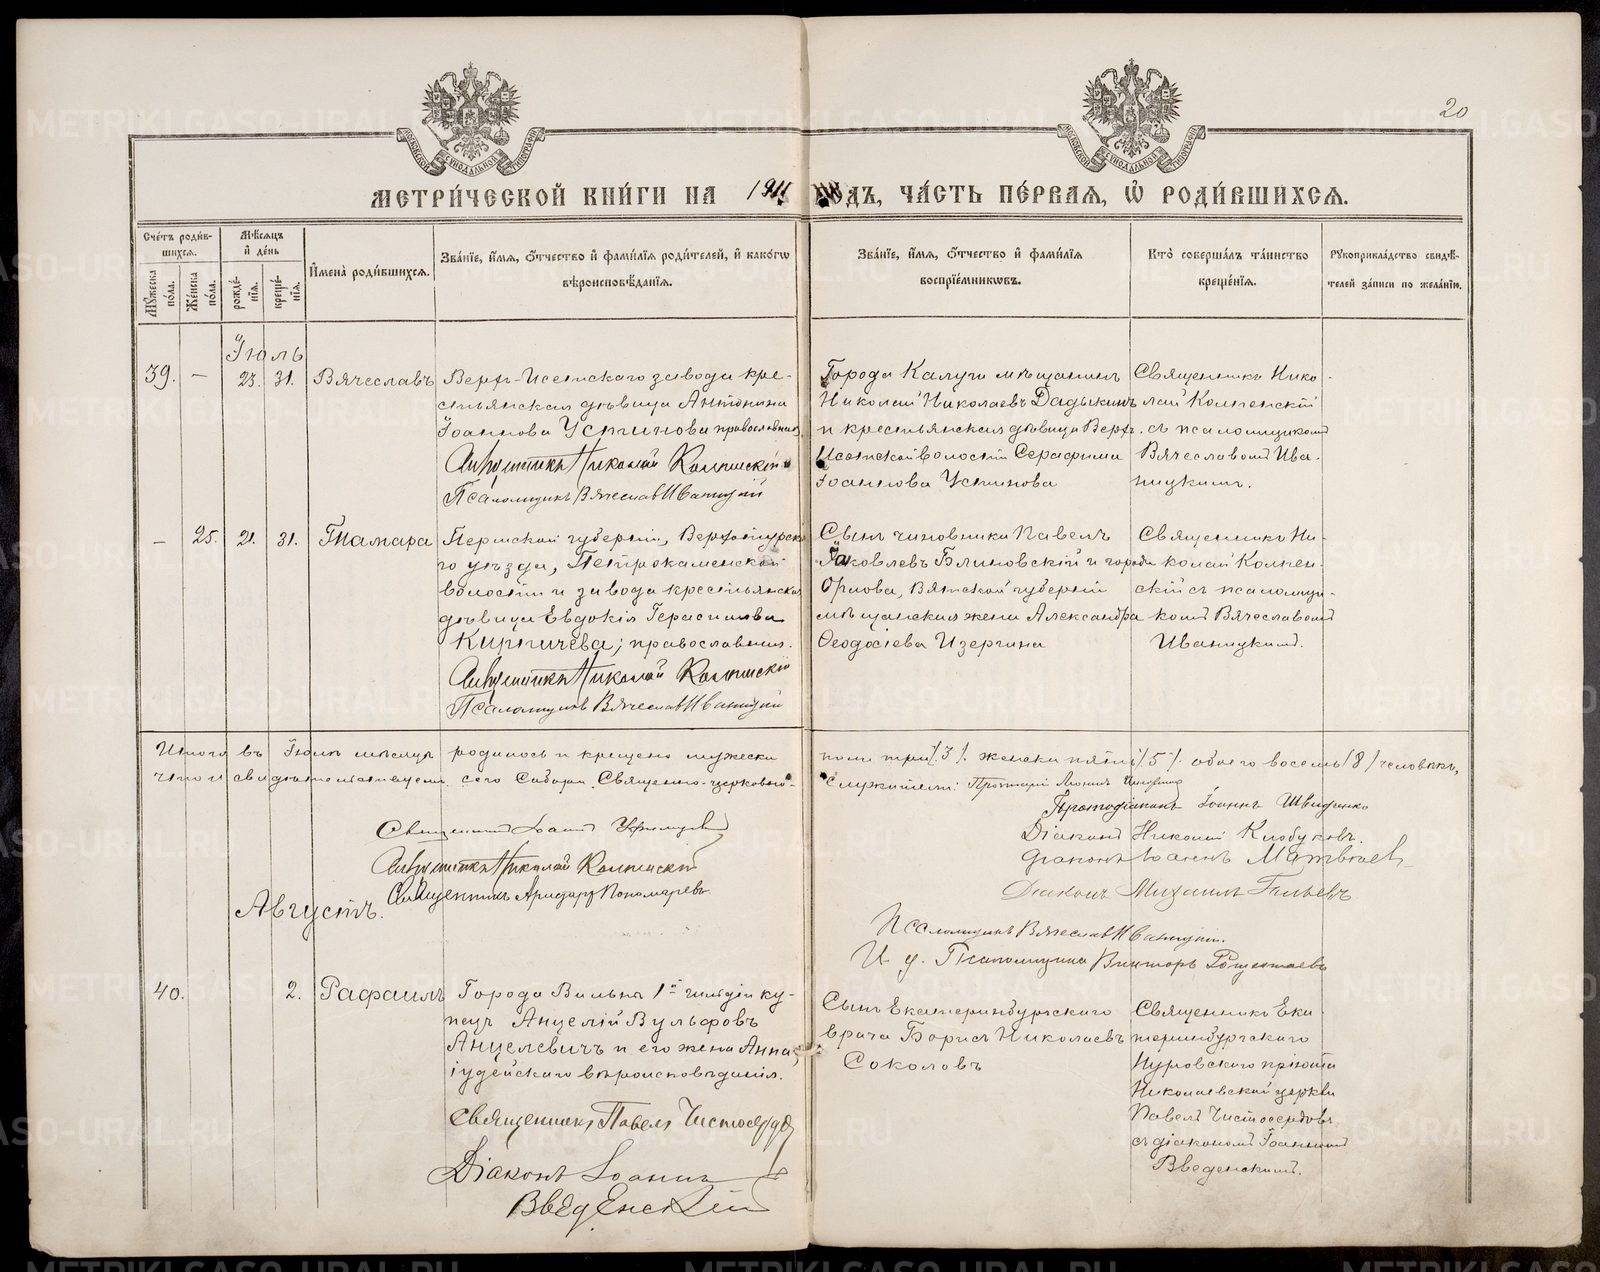 20
МЕТРИ́ЧЕСКОЙ КНИ́ГИ НА 1911 ГОДЪ, ЧА́СТЬ ПЕ́РВАЯ, Ѽ РОДИ́ВШИХСЯ.
Сче́тъ роди́вшихся.
Му́жеска по́ла.
Же́нска по́ла.
Мѣ́сяцъ и де́нь
рожде́нія.
креще́нія.
Имена̀ роди́вшихся.
Зва́ніе, и́мя, о́тчество и фами́лія роди́телей, и како́гѡ вѣроисповѣ́данія.
Зва́ніе, и́мя, о́тчество и фами́лія воспрїе́мникѡвъ.
Кто̀ соверша́лъ та́инство креще́нія.
Рукоприкла́дство свидѣ́телей за́писи по жела́нію.
Іюль
39. — 23. 31. Вячеславъ
Верхъ-Исетскаго завода кре-
стьянская дѣвица Антонина
Іоаннова Устинова православная
Священникъ Николай Колпенскій
Псаломщикъ Вячеславъ Иваницкій
Города Калуги мѣщанинъ
Николай Николаевъ Дадыкинъ
и крестьянская дѣвица Верхъ-
Исетской волости Серафима
Іоаннова Устинова
Священникъ Нико-
лай Колпенскій
съ псаломщикомъ
Вячеславомъ Ива-
ницкимъ.
— 25. 21. 31. Тамара
Пермской губерніи, Верхотурска-
го уѣзда, Петрокаменской
волости и завода крестьянская
дѣвица Евдокія Герасимова
Кирпичева; православная.
Священникъ Николай Колпенскій
Псаломщикъ Вячеславъ Иваницкій
Сынъ чиновника Павелъ
Яковлевъ Блиновскій и города
Орлова, Вятской губерніи
мѣщанская жена Александра
Ѳеодосіева Изергина
Священникъ Ни-
колай Колпен-
скій съ псаломщи-
комъ Вячеславомъ
Иваницкимъ.
Итого въ Іюлѣ мѣсяцѣ родилось и крещено мужеска пола три /3/. женска пять /5/. обоего восемь /8/ человѣкъ,
что и свидѣтельствуемъ сего Собора Священно-церковно-служители: Протоіерей
Протодіаконъ Іоаннъ Швиденко
Священникъ Іоаннъ
Діаконъ Николай Клобуковъ.
Священникъ Николай Колпенскій
діаконъ Іоаннъ Матвѣевъ
Священникъ Пономаревъ
Діаконъ Михаилъ
Псаломщикъ Вячеславъ Иваницкій.
И. д. Псаломщика Викторъ
Августъ.
40. 2. Рафаилъ
Города Вильны 1й гильдіи ку-
пецъ Анцелій Вульфовъ
Анцелевичъ и его жена Анна,
іудейскаго вѣроисповѣданія.
Священникъ Павелъ Чистосердовъ
Діаконъ Іоаннъ
Введенскій
Сынъ Екатеринбургскаго
врача Борисъ Николаевъ
Соколовъ
Священникъ Ека-
теринбургскаго
Нуровскаго пріюта
Николаевской церкви
Павелъ Чистосердовъ
съ діакономъ Іоанномъ
Введенскимъ.
METRIKI.GASO-URAL.RU